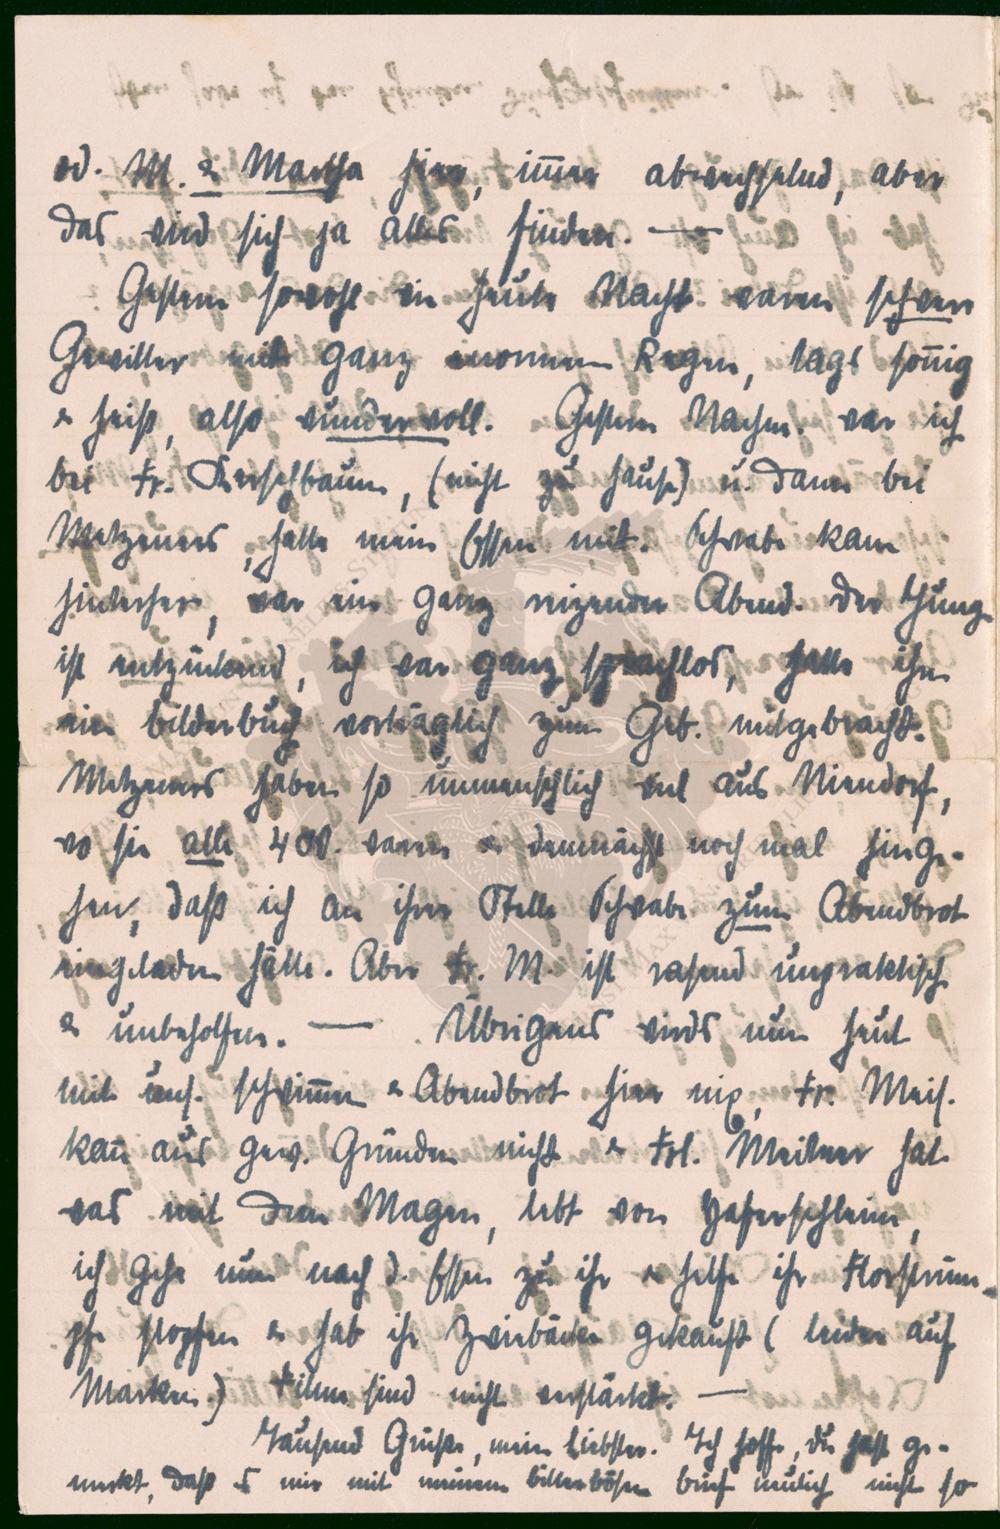 od. M. & Martha hier, im̅er abwechselnd, aber
das wird sich ja alles finden. —
Gestern sowohl wie heute Nacht waren schwere
Gewitter mit ganz enormem Regen, tags son̅ig
& heiß, also wundervoll. Gestern Nachm. war ich
bei Fr. Kerschbaum, (nicht zu Hause) u. dann bei
Metzeners, hatte mein Essen mit. Schwabe kam
hinterher, war ein ganz reizender Abend. Der Junge
ist entzückend, ich war ganz sprachlos, hatte ihm
ein Bilderbuch nachträglich zum Geb. mitgebracht.
Metzeners haben so unmenschlich viel aus Niendorf,
wo sie alle 4 W. waren & demnächst noch mal hinge-
hen, daß ich an ihrer Stelle Schwabe zum Abendbrot
eingeladen hätte. Aber Fr. M. ist rasend unpraktisch
& unbeholfen. — Übrigens wirds nun heut
mit uns. Schwim̅en & Abendbrot hier nix, Fr. Meis.
kan̅ aus gew. Gründen nicht & Frl. Meitner hat
was mit dem Magen, lebt von Haferschleim,
ich gehe nun nach d. Essen zu ihr & helfe ihr Florstrüm-
pfe stopfen & hab ihr Zwiebäcke gekauft (leider auf
Marken.) Filme sind nicht verstärkt. —
Tausend Grüße, mein Liebster. Ich hoffe, du hast ge-
merkt, daß es mir mit meinem bitterbösen Brief neulich nicht so